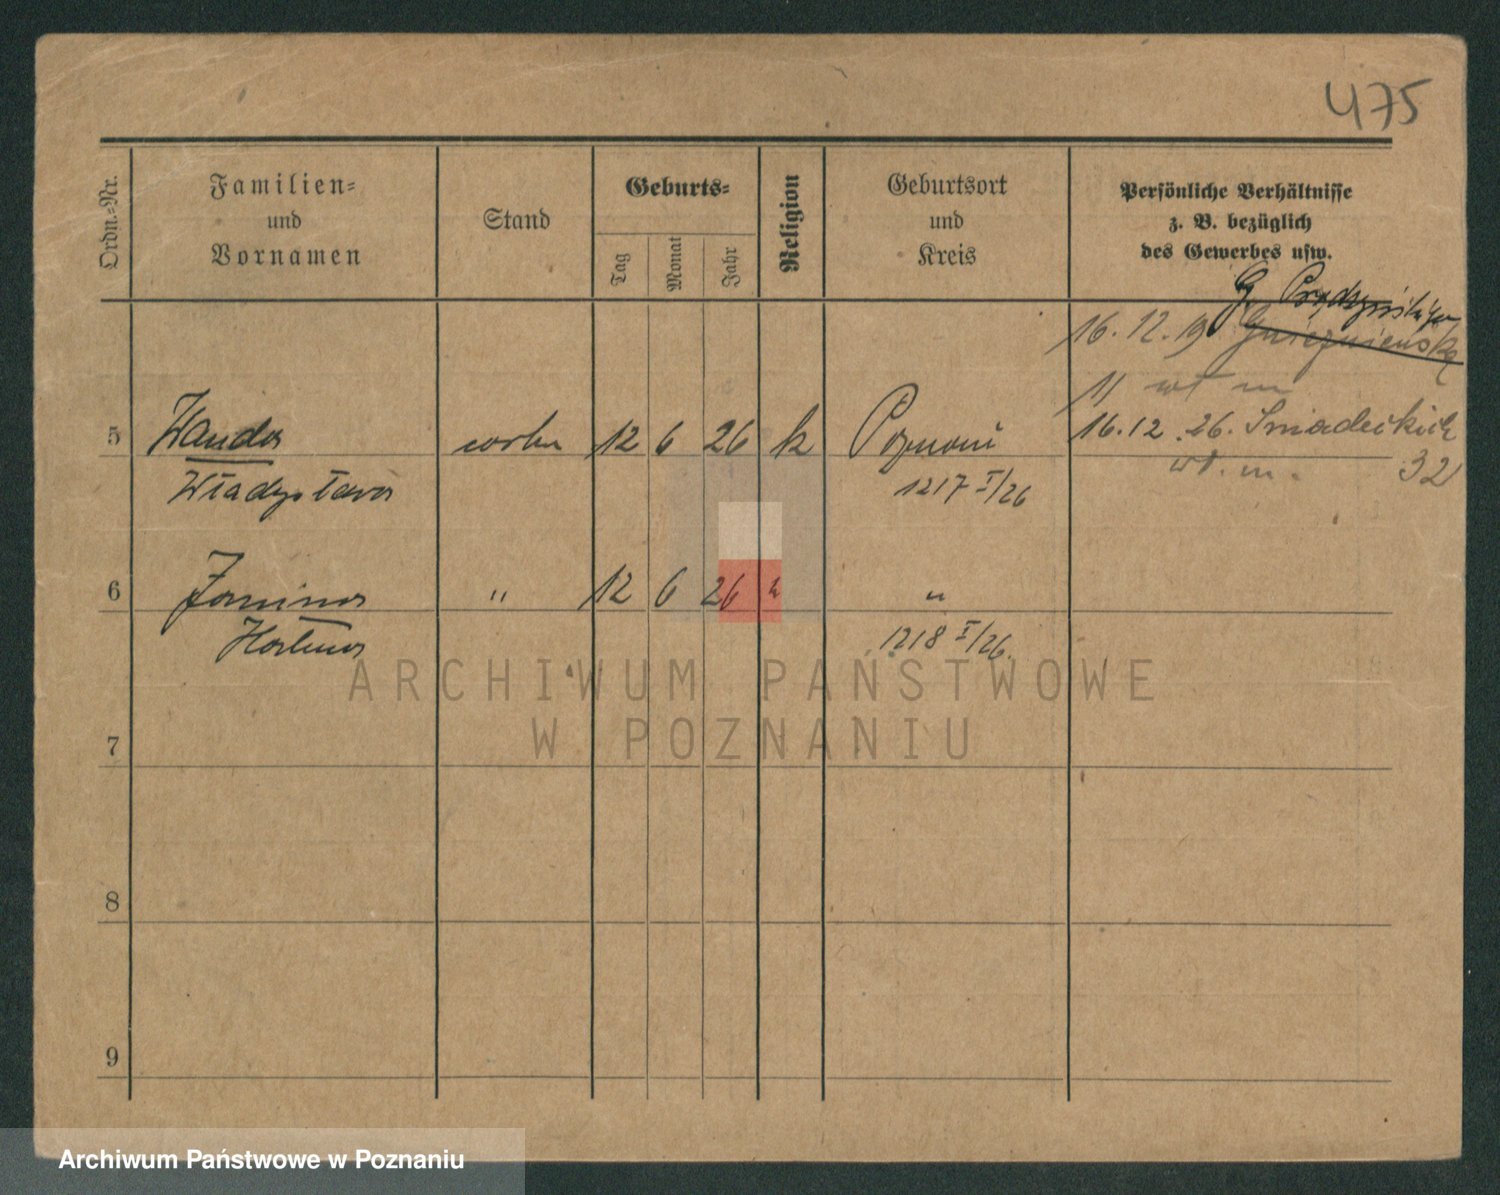 475
Ordn.-Nr.
Familien-
und
Vornamen
Stand
Geburts-
Tag
Monat
Jahr
Religion
Geburtsort
und
Kreis
Persönliche Verhältnisse
z. B. bezüglich
des Gewerbes usw.
G. Prądzyńskiego
16.12.19 Gnieźnieńska
11 wł m
5 Wanda córka 12 6 26 k Poznań 16.12.26. Śniadeckich
Władysława 1217 I/26 wł. m. 32
6 Janina " 12 6 26 k "
1218 I/26.
7
8
9
ARCHIWUM PAŃSTWOWE
W POZNANIU
Archiwum Państwowe w Poznaniu